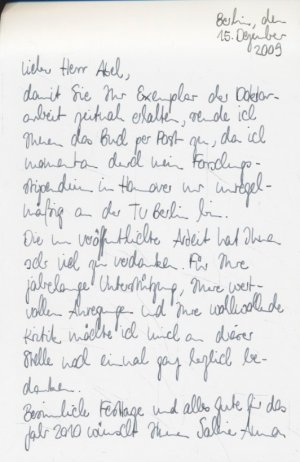 Berlin, den
15. Dezember
2009
Lieber Herr Abel,
damit Sie Ihr Exemplar der Doktor-
arbeit zeitnah erhalten, sende ich
Ihnen das Buch per Post zu, da ich
momentan durch mein Forschungs-
stipendium in Hannover nur unregel-
mäßig an der TU Berlin bin.
Die nun veröffentlichte Arbeit hat Ihnen
sehr viel zu verdanken. Für Ihre
jahrelange Unterstützung, Ihre wert-
vollen Anregungen und Ihre wohlwollende
Kritik möchte ich mich an dieser
Stelle noch einmal ganz herzlich be-
danken.
Besinnliche Festtage und alles Gute für das
Jahr 2010 wünscht Ihnen